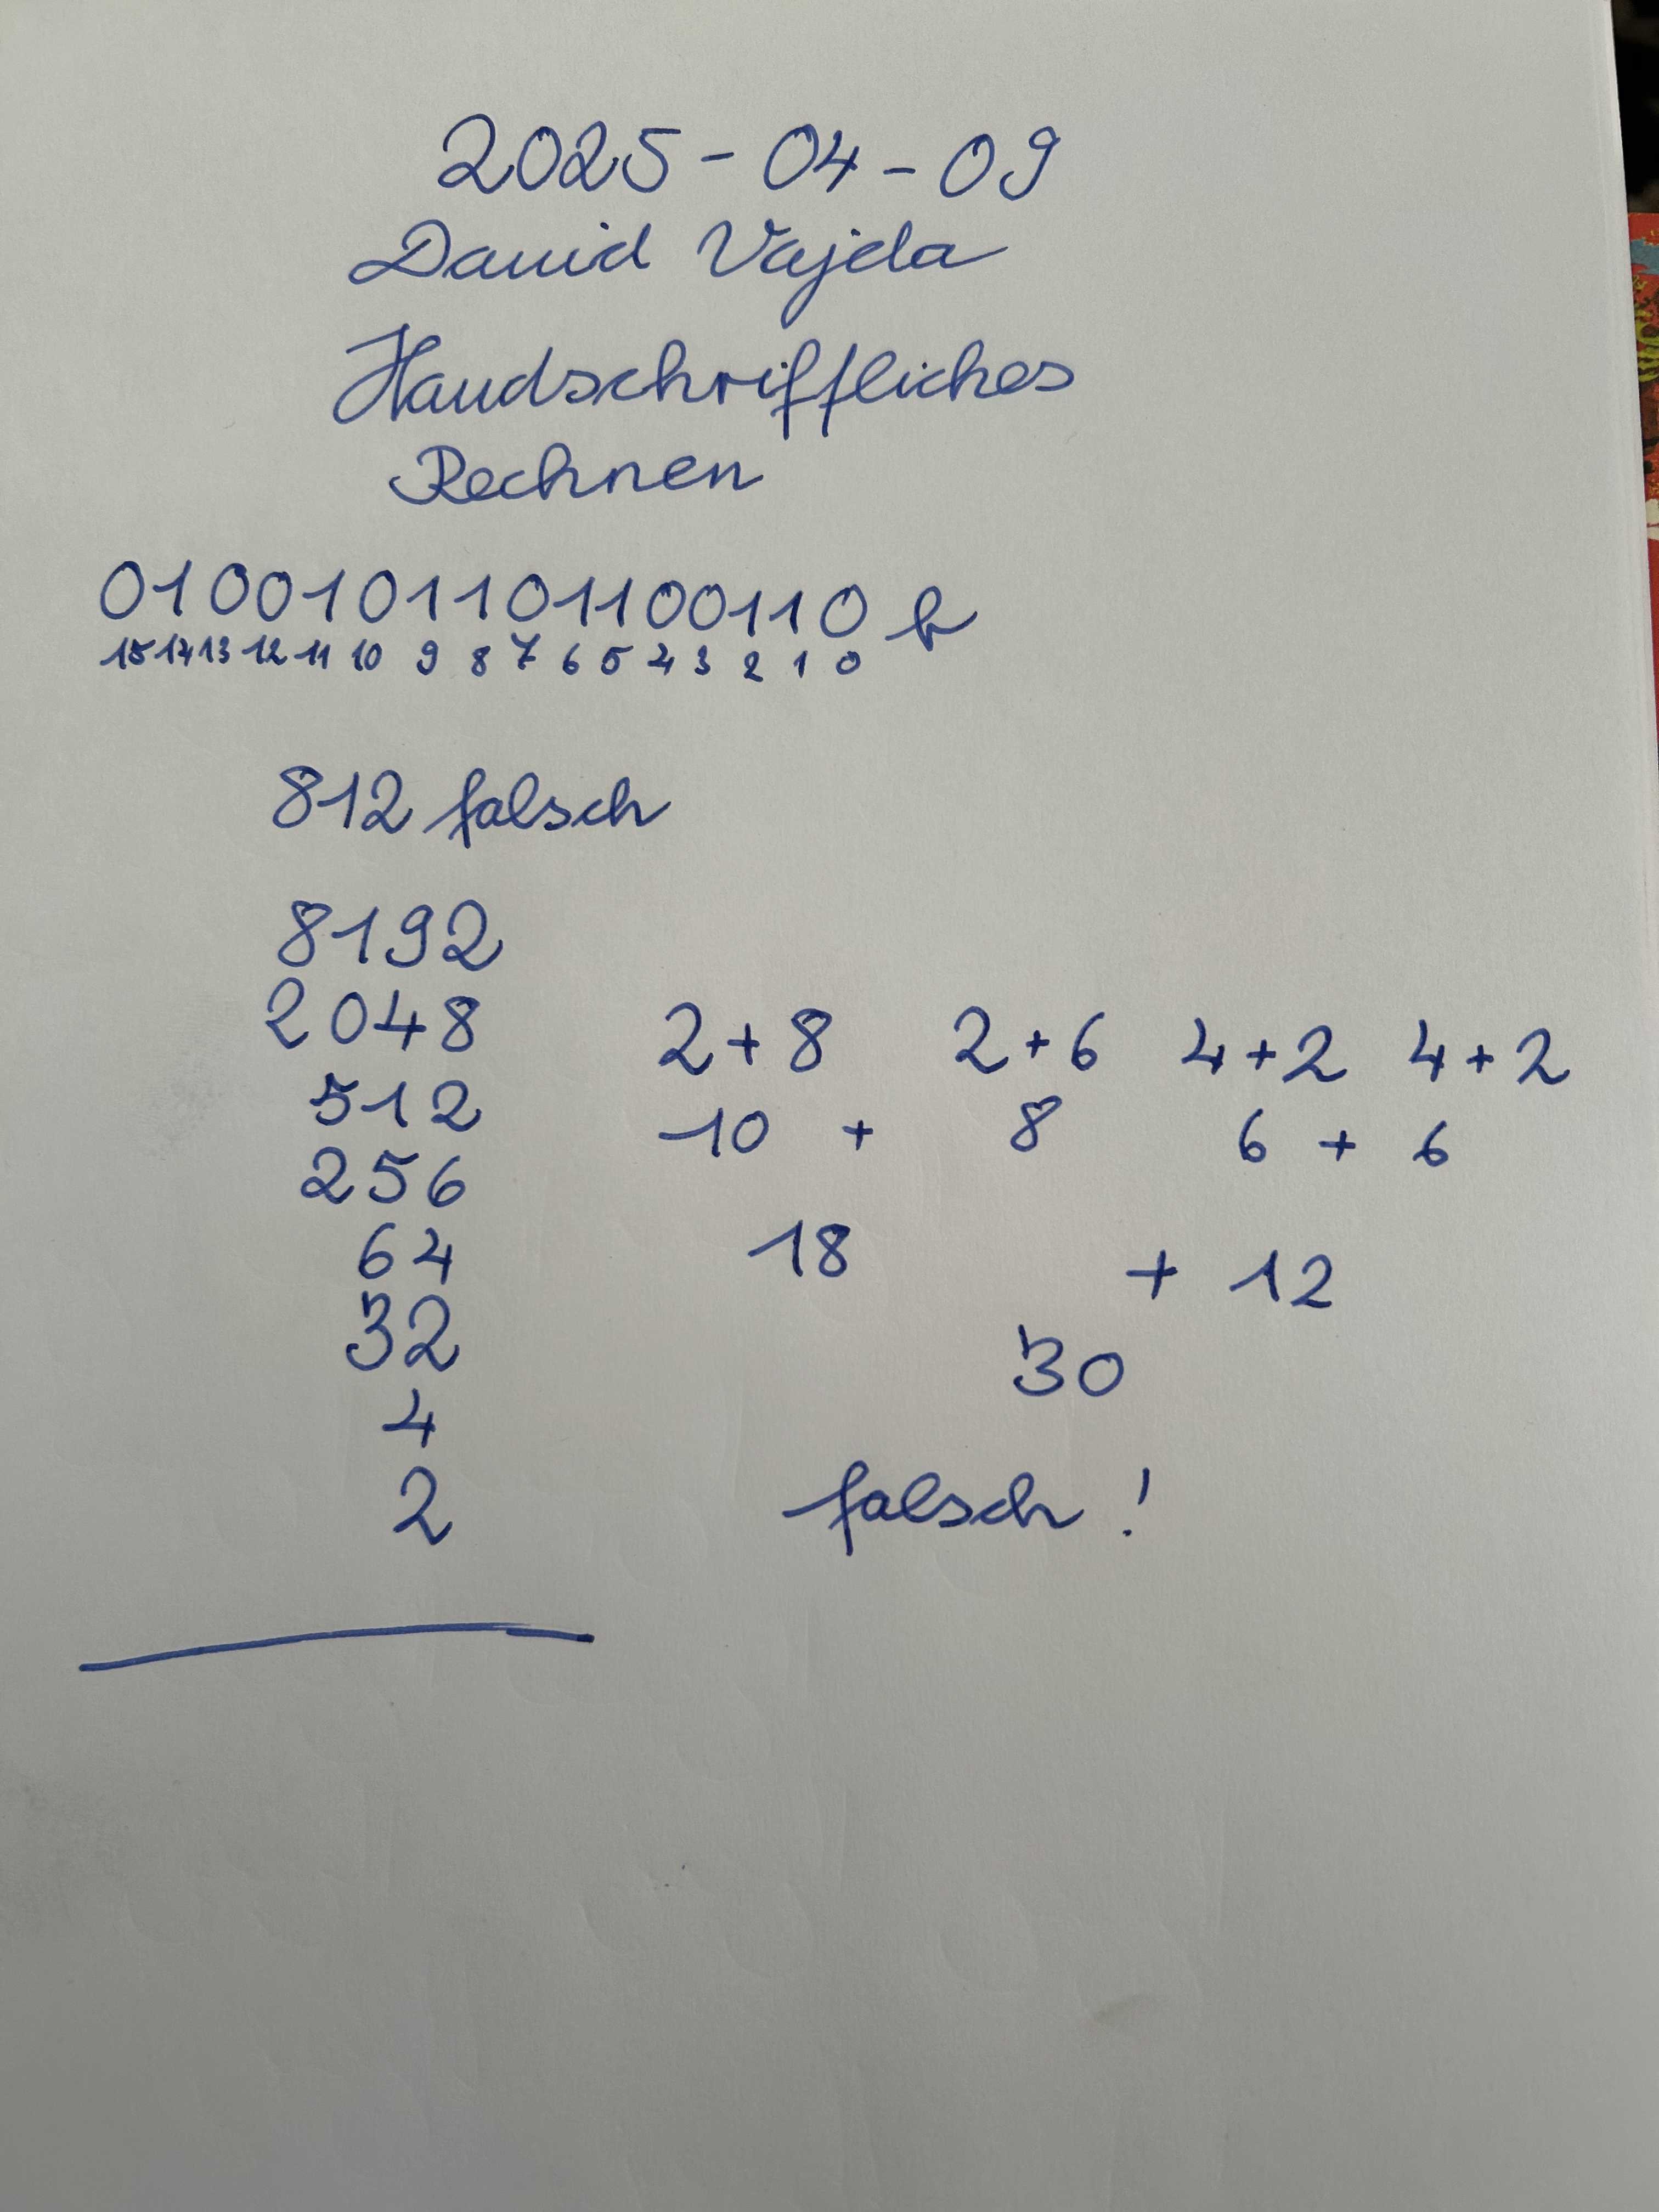 2025-04-09
David Vajda
Handschriftliches
Rechnen
0100101101100110 b
15 14 13 12 11 10 9 8 7 6 5 4 3 2 1 0
812 falsch
8192
2048
512
256
64
32
4
2
2+8 2+6 4+2 4+2
10 + 8 6 + 6
18 + 12
30
falsch!